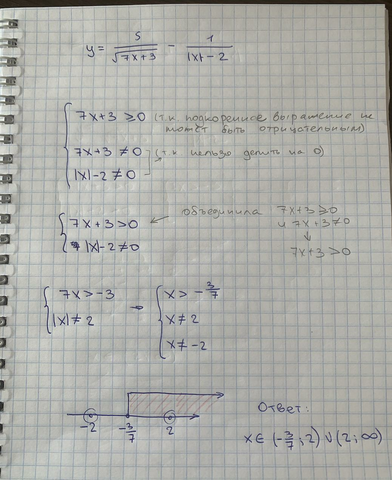 y = 5/√(7x+3) − 1/(|x|−2)
{ 7x+3 ≥ 0 (т.к. подкоренное выражение не
может быть отрицательным)
7x+3 ≠ 0 (т.к нельзя делить на 0)
|x|−2 ≠ 0
{ 7x+3 > 0 ← объединила 7x+3 ≥ 0
и 7x+3 ≠ 0
↓
|x|−2 ≠ 0
7x+3 > 0
{ 7x > −3 → { x > −3/7
|x| ≠ 2
x ≠ 2
x ≠ −2
−2 −3/7 2
Ответ:
x ∈ (−3/7; 2) ∪ (2; ∞)